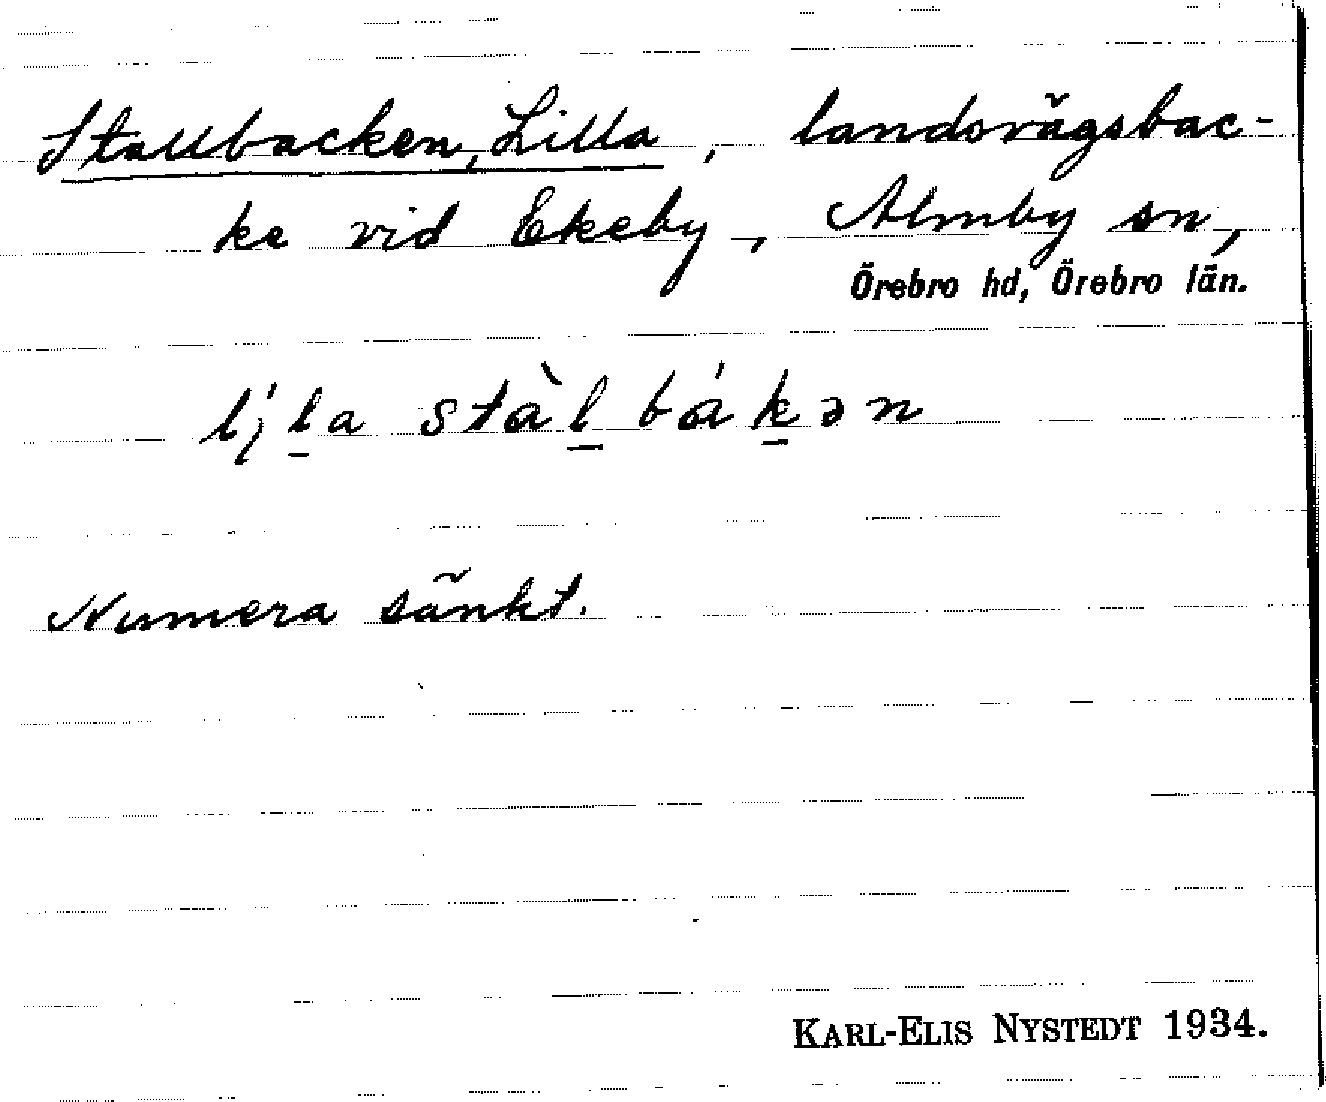 Stallbacken, Lilla, landsvägsbac-
ke vid Ekeby, Almby sn,
Örebro hd, Örebro län.
lı̨́l̠a stàl̠bák̠ən
Numera sänkt.
KARL-ELIS NYSTEDT 1934.